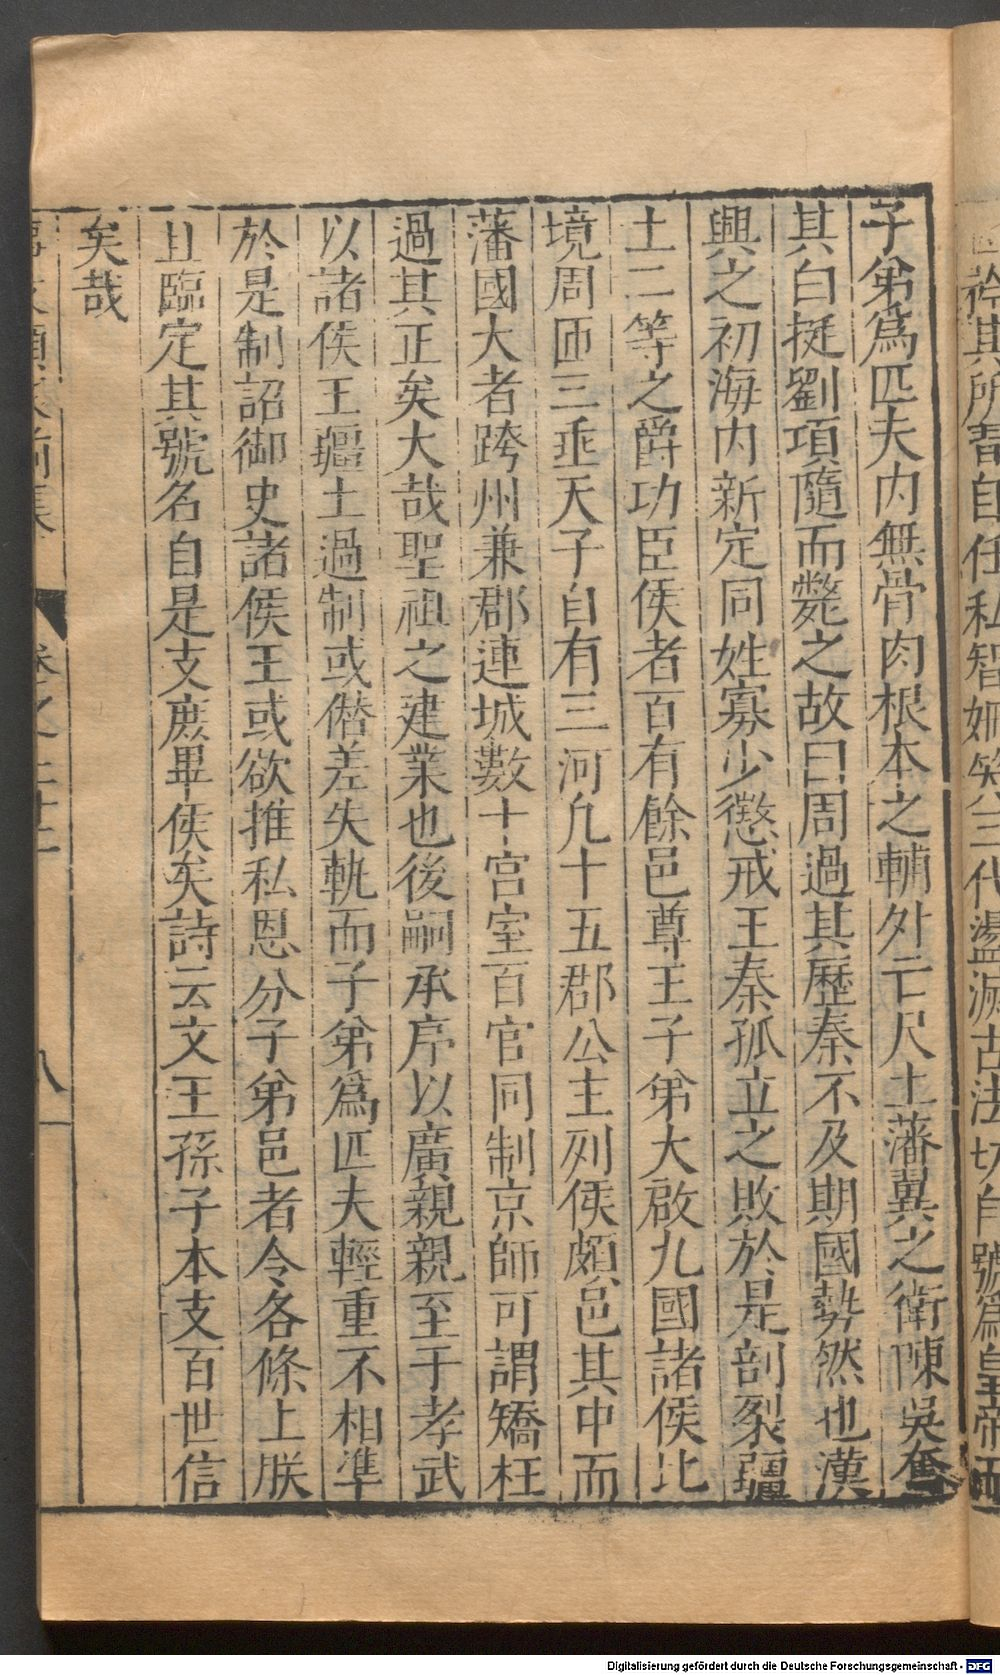 矜其所習自任私智姍笑三代盪滅古法切自號爲皇帝而
子弟爲匹夫内無骨肉根本之輔外亡尺土藩翼之衛陳吳奮
其白挺劉項隨而斃之故曰周過其歷秦不及期國勢然也漢
興之初海内新定同姓寡少懲戒亡秦孤立之敗於是剖裂疆
土二等之爵功臣侯者百有餘邑尊王子弟大啟九國諸侯比
境周匝三垂天子自有三河凡十五郡公主列侯頗邑其中而
藩國大者跨州兼郡連城數十宫室百官同制京師可謂矯枉
過其正矣大哉聖祖之建業也後嗣承序以廣親親至于孝武
以諸侯王疆土過制或僣差失軌而子弟爲匹夫輕重不相準
於是制詔御史諸侯王或欲推私恩分子弟邑者令各條上朕
且臨定其號名自是支庶畢侯矣詩云文王孫子本支百世信
矣哉
卷之二十二
八
Digitalisierung gefördert durch die Deutsche Forschungsgemeinschaft - DFG